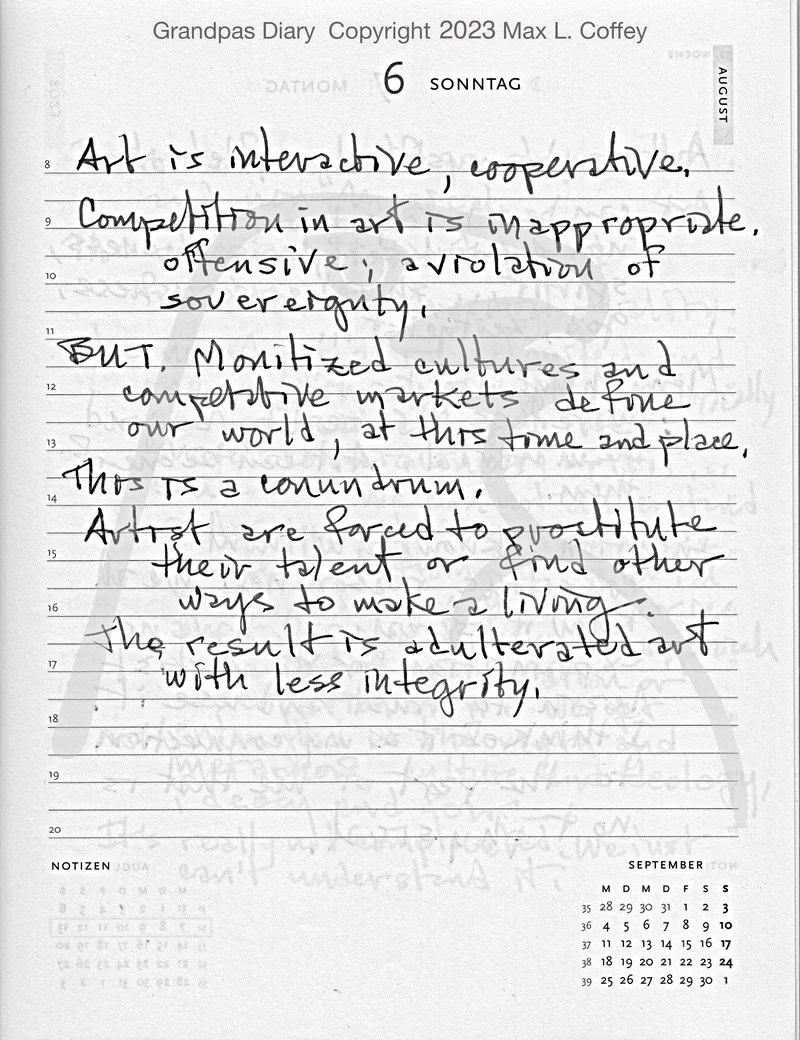 Grandpas Diary Copyright 2023 Max L. Coffey
6 SONNTAG
AUGUST
8 Art is interactive, cooperative.
9 Competition in art is inappropriate,
offensive; a violation of
10
sovereignty.
11
BUT. Monitized cultures and
12 competative markets define
13 our world, at this time and place.
This is a conundrum.
14
Artist are forced to prostitute
15 their talent or find other
16 ways to make a living.
The result is adulterated art
17 with less integrity.
18
19
20
NOTIZEN
SEPTEMBER
M D M D F S S
35 28 29 30 31 1 2 3
36 4 5 6 7 8 9 10
37 11 12 13 14 15 16 17
38 18 19 20 21 22 23 24
39 25 26 27 28 29 30 1